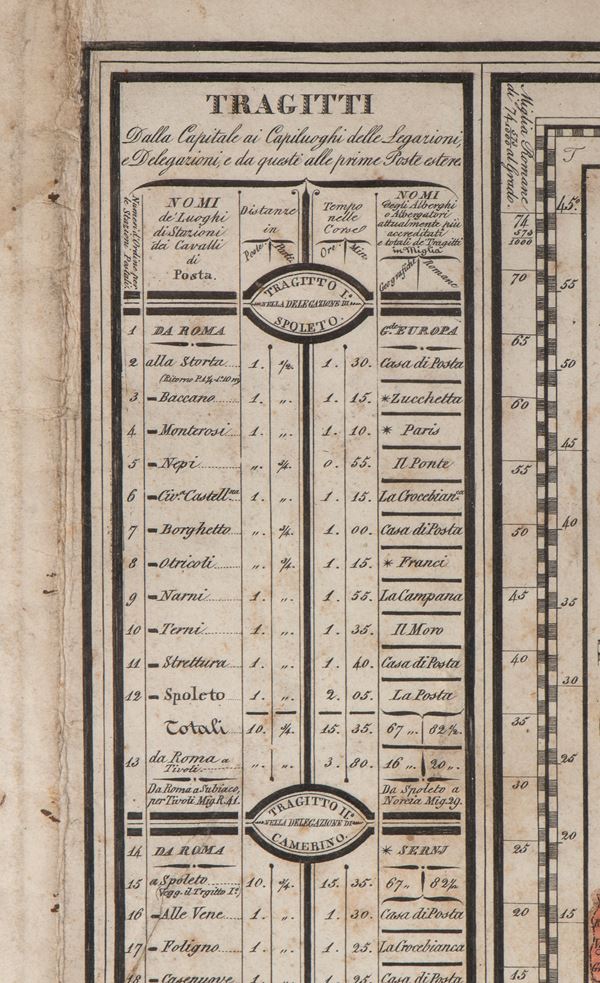 TRAGITTI
Dalla Capitale ai Capiluoghi delle Legazioni,
e Delegazioni, e da questi alle prime Poste estere.
Numeri d'Ordine per
le Stazioni Postali.
NOMI
de' Luoghi
di Stazioni
dei Cavalli
di
Posta.
Distanze
in
Poste Parti.
Tempo
nelle
Corse
Ore. Min.
NOMI
degli Alberghi
o Albergatori
attualmente più
accreditati
e totali de Tragitti
in Miglia
Geografiche Romane
TRAGITTO I.o
NELLA DELEGAZIONE DI
SPOLETO.
1 DA ROMA G.de EUROPA
2 alla Storta 1. ½. 1. 30. Casa di Posta
3 Baccano 1. „. 1. 15. *Zucchetta
4 Monterosi 1. „. 1. 10. * Paris
5 Nepi „. ¾. 0. 55. Il Ponte
6 Civ.a Castell.na 1. „. 1. 15. La Crocebian.ca
7 Borghetto „. ¾. 1. 00. Casa di Posta
8 Otricoli „. ¾. 1. 15. * Franci
9 Narni 1. „. 1. 55. La Campana
10 Terni 1. „. 1. 35. Il Moro
11 Strettura 1. „. 1. 40. Casa di Posta
12 Spoleto 1. „. 2. 05. La Posta
Totali 10. ¾. 15. 35. 67 „. 82½.
13 da Roma a
Tivoli „. „. 3. 80. 16 „. 20 „.
Da Roma a Subiaco,
per Tivoli Mig. R. 41.
Da Spoleto a
Norcia Mig. 29.
TRAGITTO II.o
NELLA DELEGAZIONE DI
CAMERINO.
14 DA ROMA * SERNJ
15 a Spoleto 10. ¾. 15. 35. 67 „. 82½.
(Vegg. il Trgitto I.o)
16 Alle Vene 1. „. 1. 30. Casa di Posta
17 Foligno 1. „. 1. 25. La Crocebianca
18 Casenuove 1. „. 1. 25. Casa di Posta
Miglia Romane
74
578
1000
70
65
60
55
50
45
40
35
30
25
20
15
T
45.o
55
50
45
40
35
30
25
20
15